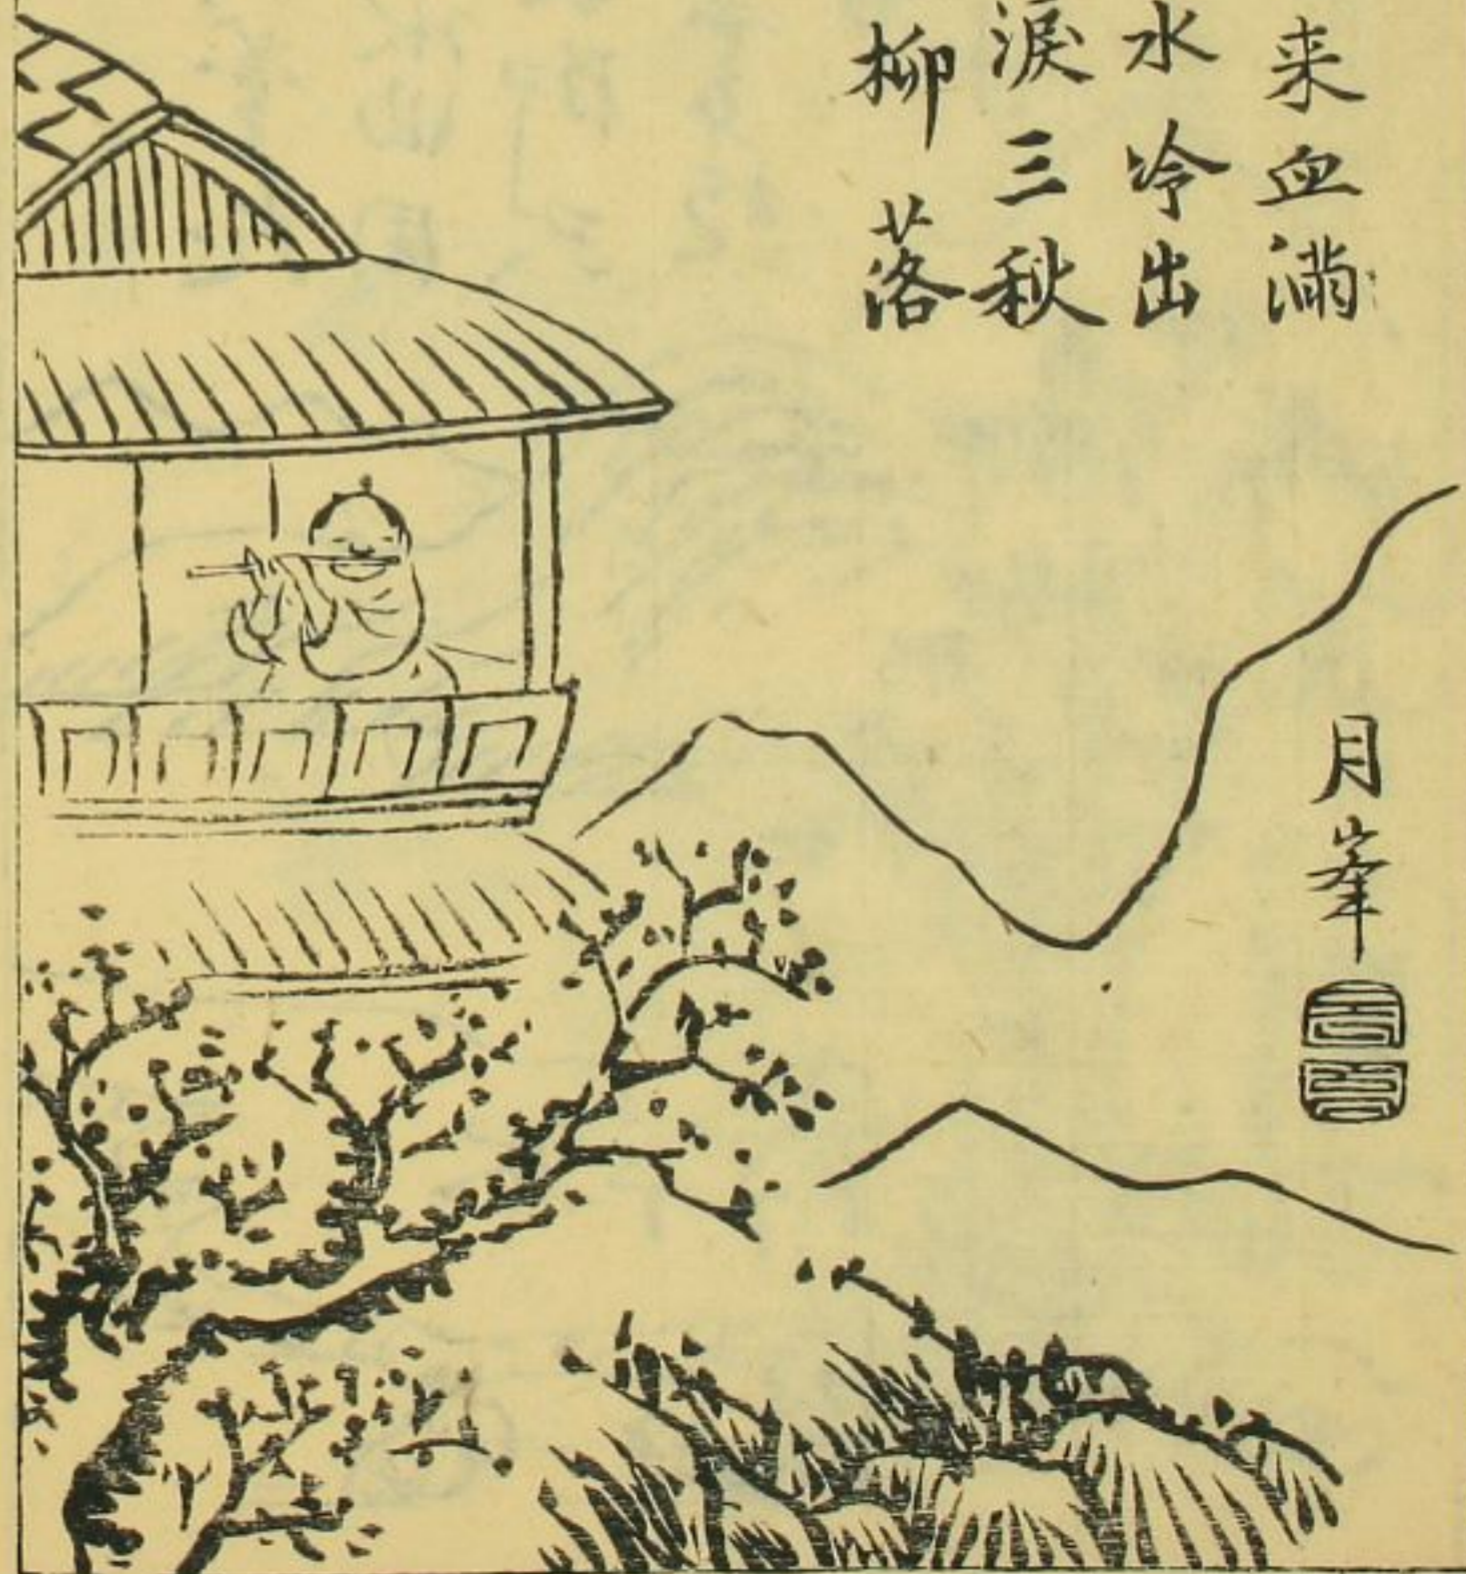 来血滿
水冷出
淚三秋
柳落
月峯